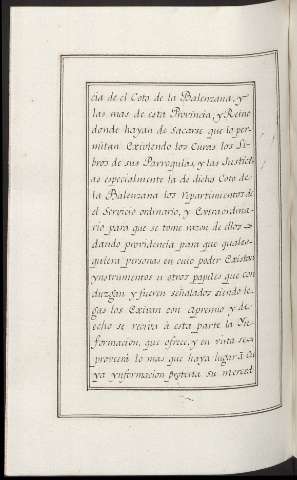 cia de el Coto de la Balenzana, y
las mas de esta Provincia, y Reino
donde hayan de Sacarse que lo per-
mitan Existendo los Curas los Li-
bros de sus Parroquias, y las Justici-
as especialmente la de dicho Coto de
la Balenzana los repartimientos de
el Servicio ordinario, y Extraordina-
rio para que se tome razon de ellos
dando providencia para que quales-
quiera personas en cuio poder Existan
ynstrumentos u otros papeles que con-
duzgan y fueren señalados siendo le-
gas los Exivan con apremio y de-
echo se reciva à esta parte la Yn-
formacion, que ofrece, y en vista se
proveerà lo mas que haya lugar à Cu-
ya ynformacion protexta su merced